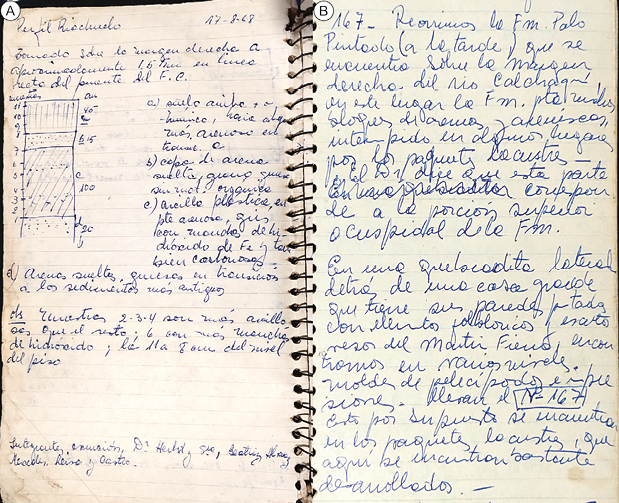 A
Perfil Riachuelo 17-8-68
Tomado sobre la margen derecha a
aproximadamente 1,5 Km en linea
recta del puente del F.C.
muestras cm
11
10 40
9
8 15
7
6
5 c
4 100
3
2
d 20
a) suelo
húmico, hacia abajo
más arenoso en
b) capa de arena
suelta, gruesa
sin mat. orgánica
c) arcilla plastica, en
pte arenosa, gris
con manchas de hi-
dróxido de Fe y tam
bien carbonosas
d) Arenas sueltas, gruesas en transición
a los sedimentos más antiguos
Muestras 2-3-4 son más arcillo
sas que el resto; 6 con más manchas
de hidróxido; la 11 a 8 cm del nivel
del piso
Integrantes comisión, Dr Herbst y Sra, Beatriz
y Castro.
B
167- Recorrimos la Fm. Palo
Pintado (a la tarde) que se
encuentra sobre la margen
derecha del rio Calchaquí
en este lugar la Fm. pta muchos
areniscas,
interrumpido en algunos lugares
por los paquetes lacustres -
El Dr dice que esta parte
correspon
de a la porción superior
o cuspidal de la Fm.
En una quebradita lateral
detrá de una casa grande
que tiene sus paredes pintadas
con elemtos folkloricos y
versos del Martin Fierro, encon
tramos en varios niveles
moldes de pelecípodos e impre
siones. Llevan el Nº 167
esto por supuesto se encuentran
en los paquetes lacustres, que
aquí se encuentran bastante
desarrollados. -